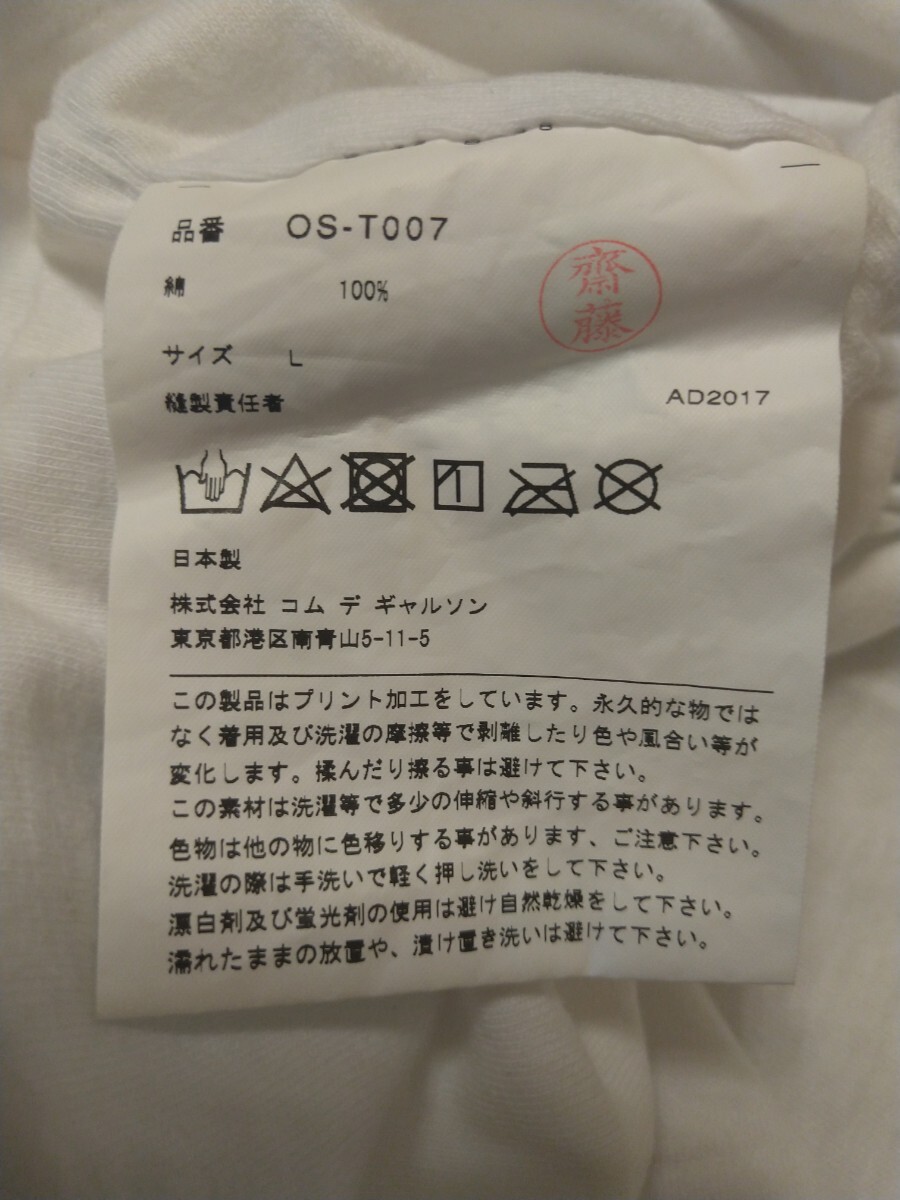 品番 OS-T007
綿 100%
齋藤
サイズ L
縫製責任者
AD2017
日本製
株式会社 コム デ ギャルソン
東京都港区南青山5-11-5
この製品はプリント加工をしています。永久的な物では
なく着用及び洗濯の摩擦等で剥離したり色や風合い等が
変化します。揉んだり擦る事は避けて下さい。
この素材は洗濯等で多少の伸縮や斜行する事があります。
色物は他の物に色移りする事があります、ご注意下さい。
洗濯の際は手洗いで軽く押し洗いをして下さい。
漂白剤及び蛍光剤の使用は避け自然乾燥をして下さい。
濡れたままの放置や、漬け置き洗いは避けて下さい。